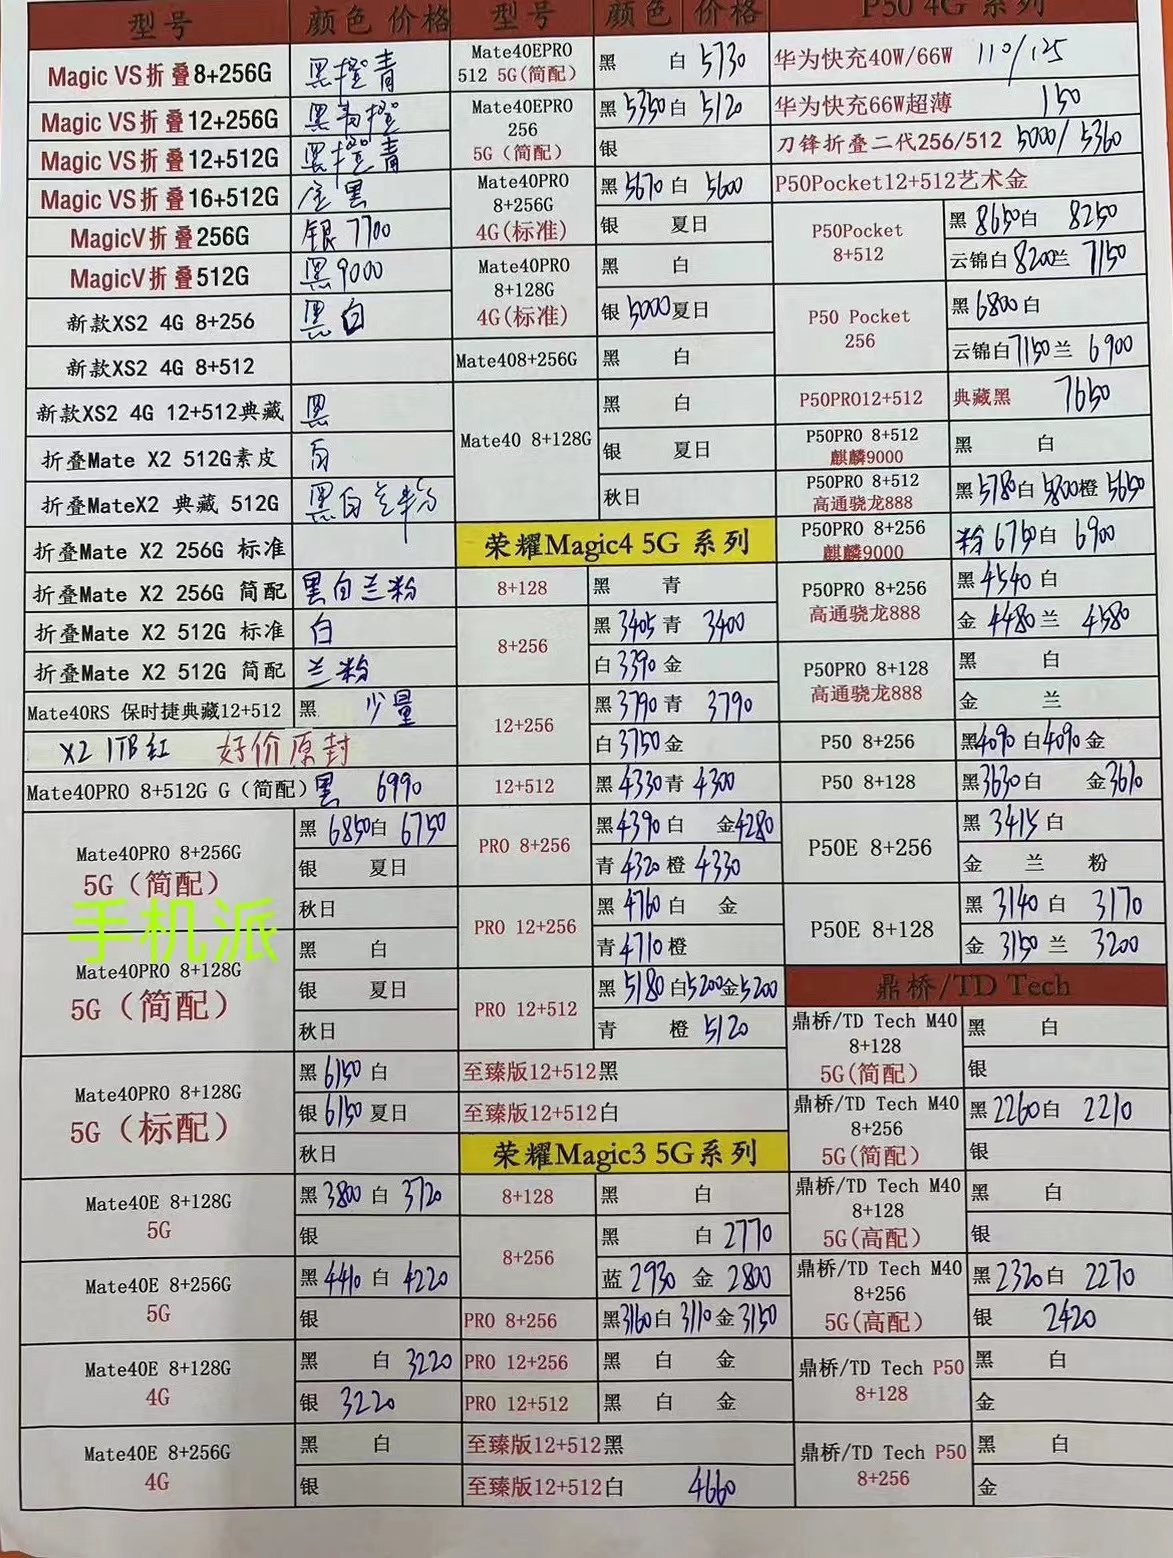 型号 颜色 价格
Magic VS折叠8+256G 黑橙青
Magic VS折叠12+256G 黑青橙
Magic VS折叠12+512G 黑橙青
Magic VS折叠16+512G 金黑
MagicV折叠256G 银 7700
MagicV折叠512G 黑 9000
新款XS2 4G 8+256 黑白
新款XS2 4G 8+512
新款XS2 4G 12+512典藏 黑
折叠Mate X2 512G素皮 白
折叠MateX2 典藏 512G 黑白兰粉
折叠Mate X2 256G 标准
折叠Mate X2 256G 简配 黑白兰粉
折叠Mate X2 512G 标准 白
折叠Mate X2 512G 简配 兰粉
Mate40RS 保时捷典藏12+512 黑 少量
X2 1TB红 好价原封
Mate40PRO 8+512G G(简配) 黑 6990
Mate40PRO 8+256G
5G(简配)
黑 6850 白 6750
银 夏日
秋日
手机派
Mate40PRO 8+128G
5G(简配)
黑 白
银 夏日
秋日
Mate40PRO 8+128G
5G(标配)
黑 6150 白
银 6150 夏日
秋日
Mate40E 8+128G
5G
黑 3800 白 3720
银
Mate40E 8+256G
5G
黑 4410 白 4220
银
Mate40E 8+128G
4G
黑 白 3220
银 3220
Mate40E 8+256G
4G
黑 白
银
型号 颜色 价格
Mate40EPRO
512 5G(简配)
黑 白 5730
Mate40EPRO
256
5G(简配)
黑 5350 白 5120
银
Mate40PRO
8+256G
4G(标准)
黑 5670 白 5600
银 夏日
Mate40PRO
8+128G
4G(标准)
黑 白
银 5000 夏日
Mate408+256G 黑 白
Mate40 8+128G
黑 白
银 夏日
秋日
荣耀Magic4 5G 系列
8+128 黑 青
8+256
黑 3405 青 3400
白 3390 金
12+256
黑 3790 青 3790
白 3750 金
12+512 黑 4330 青 4300
PRO 8+256
黑 4390 白 金 4280
青 4320 橙 4330
PRO 12+256
黑 4760 白 金
青 4710 橙
PRO 12+512
黑 5180 白 5200 金 5200
青 橙 5120
至臻版12+512黑
至臻版12+512白
荣耀Magic3 5G系列
8+128 黑 白
8+256
黑 白 2770
蓝 2930 金 2800
PRO 8+256 黑 3160 白 3110 金 3150
PRO 12+256 黑 白 金
PRO 12+512 黑 白 金
至臻版12+512黑
至臻版12+512白 4660
P50 4G 系列
华为快充40W/66W 110/125
华为快充66W超薄 150
刀锋折叠二代256/512 5000/5360
P50Pocket12+512艺术金
P50Pocket
8+512
黑 8650 白 8250
云锦白 8200 兰 7150
P50 Pocket
256
黑 6800 白
云锦白 7150 兰 6900
P50PRO12+512 典藏黑 7650
P50PRO 8+512
麒麟9000
黑 白
P50PRO 8+512
高通骁龙888
黑 5780 白 5800 橙 5650
P50PRO 8+256
麒麟9000
粉 6750 白 6900
P50PRO 8+256
高通骁龙888
黑 4540 白
金 4480 兰 4580
P50PRO 8+128
高通骁龙888
黑 白
金 兰
P50 8+256 黑 4090 白 4090 金
P50 8+128 黑 3630 白 金 3610
P50E 8+256
黑 3415 白
金 兰 粉
P50E 8+128
黑 3140 白 3170
金 3150 兰 3200
鼎桥/TD Tech
鼎桥/TD Tech M40
8+128
5G(简配)
黑 白
银
鼎桥/TD Tech M40
8+256
5G(简配)
黑 2260 白 2210
银
鼎桥/TD Tech M40
8+128
5G(高配)
黑 白
银
鼎桥/TD Tech M40
8+256
5G(高配)
黑 2320 白 2270
银 2420
鼎桥/TD Tech P50
8+128
黑 白
金
鼎桥/TD Tech P50
8+256
黑 白
金